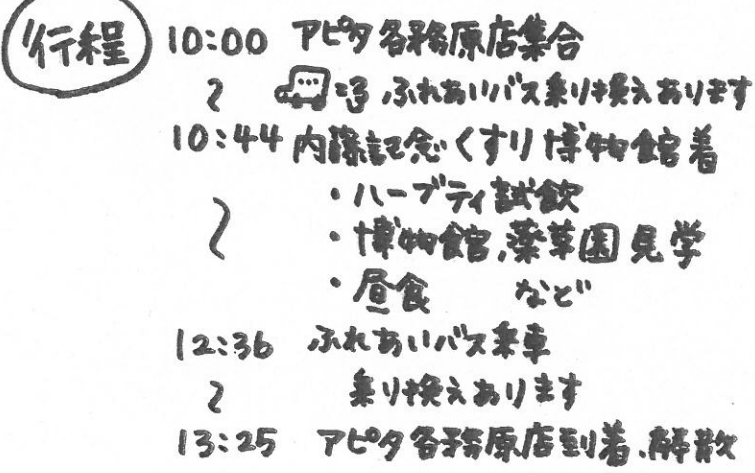 行程
10:00 アピタ各務原店集合
〜 ふれあいバス乗り換えあります
10:44 内藤記念くすり博物館着
〜 ・ハーブティ試飲
・博物館、薬草園見学
・昼食 など
12:36 ふれあいバス乗車
〜 乗り換えあります
13:25 アピタ各務原店到着、解散